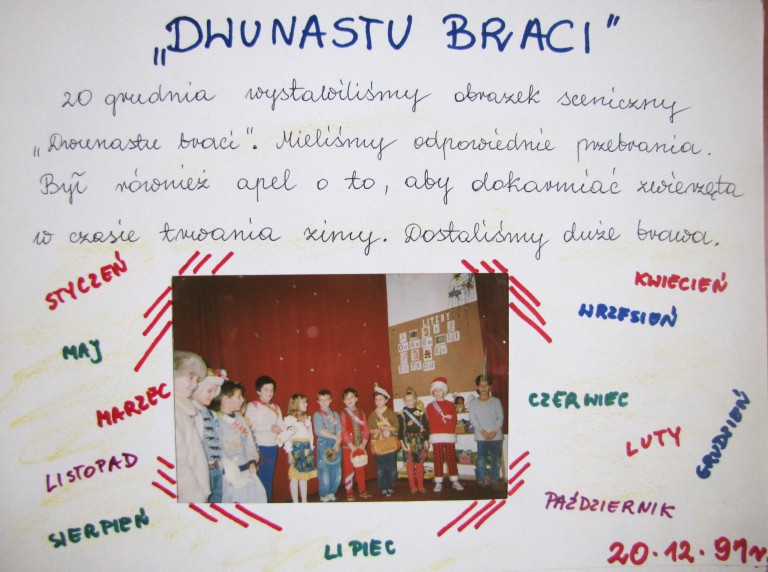 „DWUNASTU BRACI"
20 grudnia wystawiliśmy obrazek sceniczny
„Dwunastu braci". Mieliśmy odpowiednie przebrania.
Był również apel o to, aby dokarmiać zwierzęta
w czasie trwania zimy. Dostaliśmy duże brawa.
STYCZEŃ
KWIECIEŃ
WRZESIEŃ
MAJ
LITERY
MARZEC
CZERWIEC
GRUDZIEŃ
LUTY
LISTOPAD
PAŹDZIERNIK
SIERPIEŃ
LIPIEC
20.12.91r.